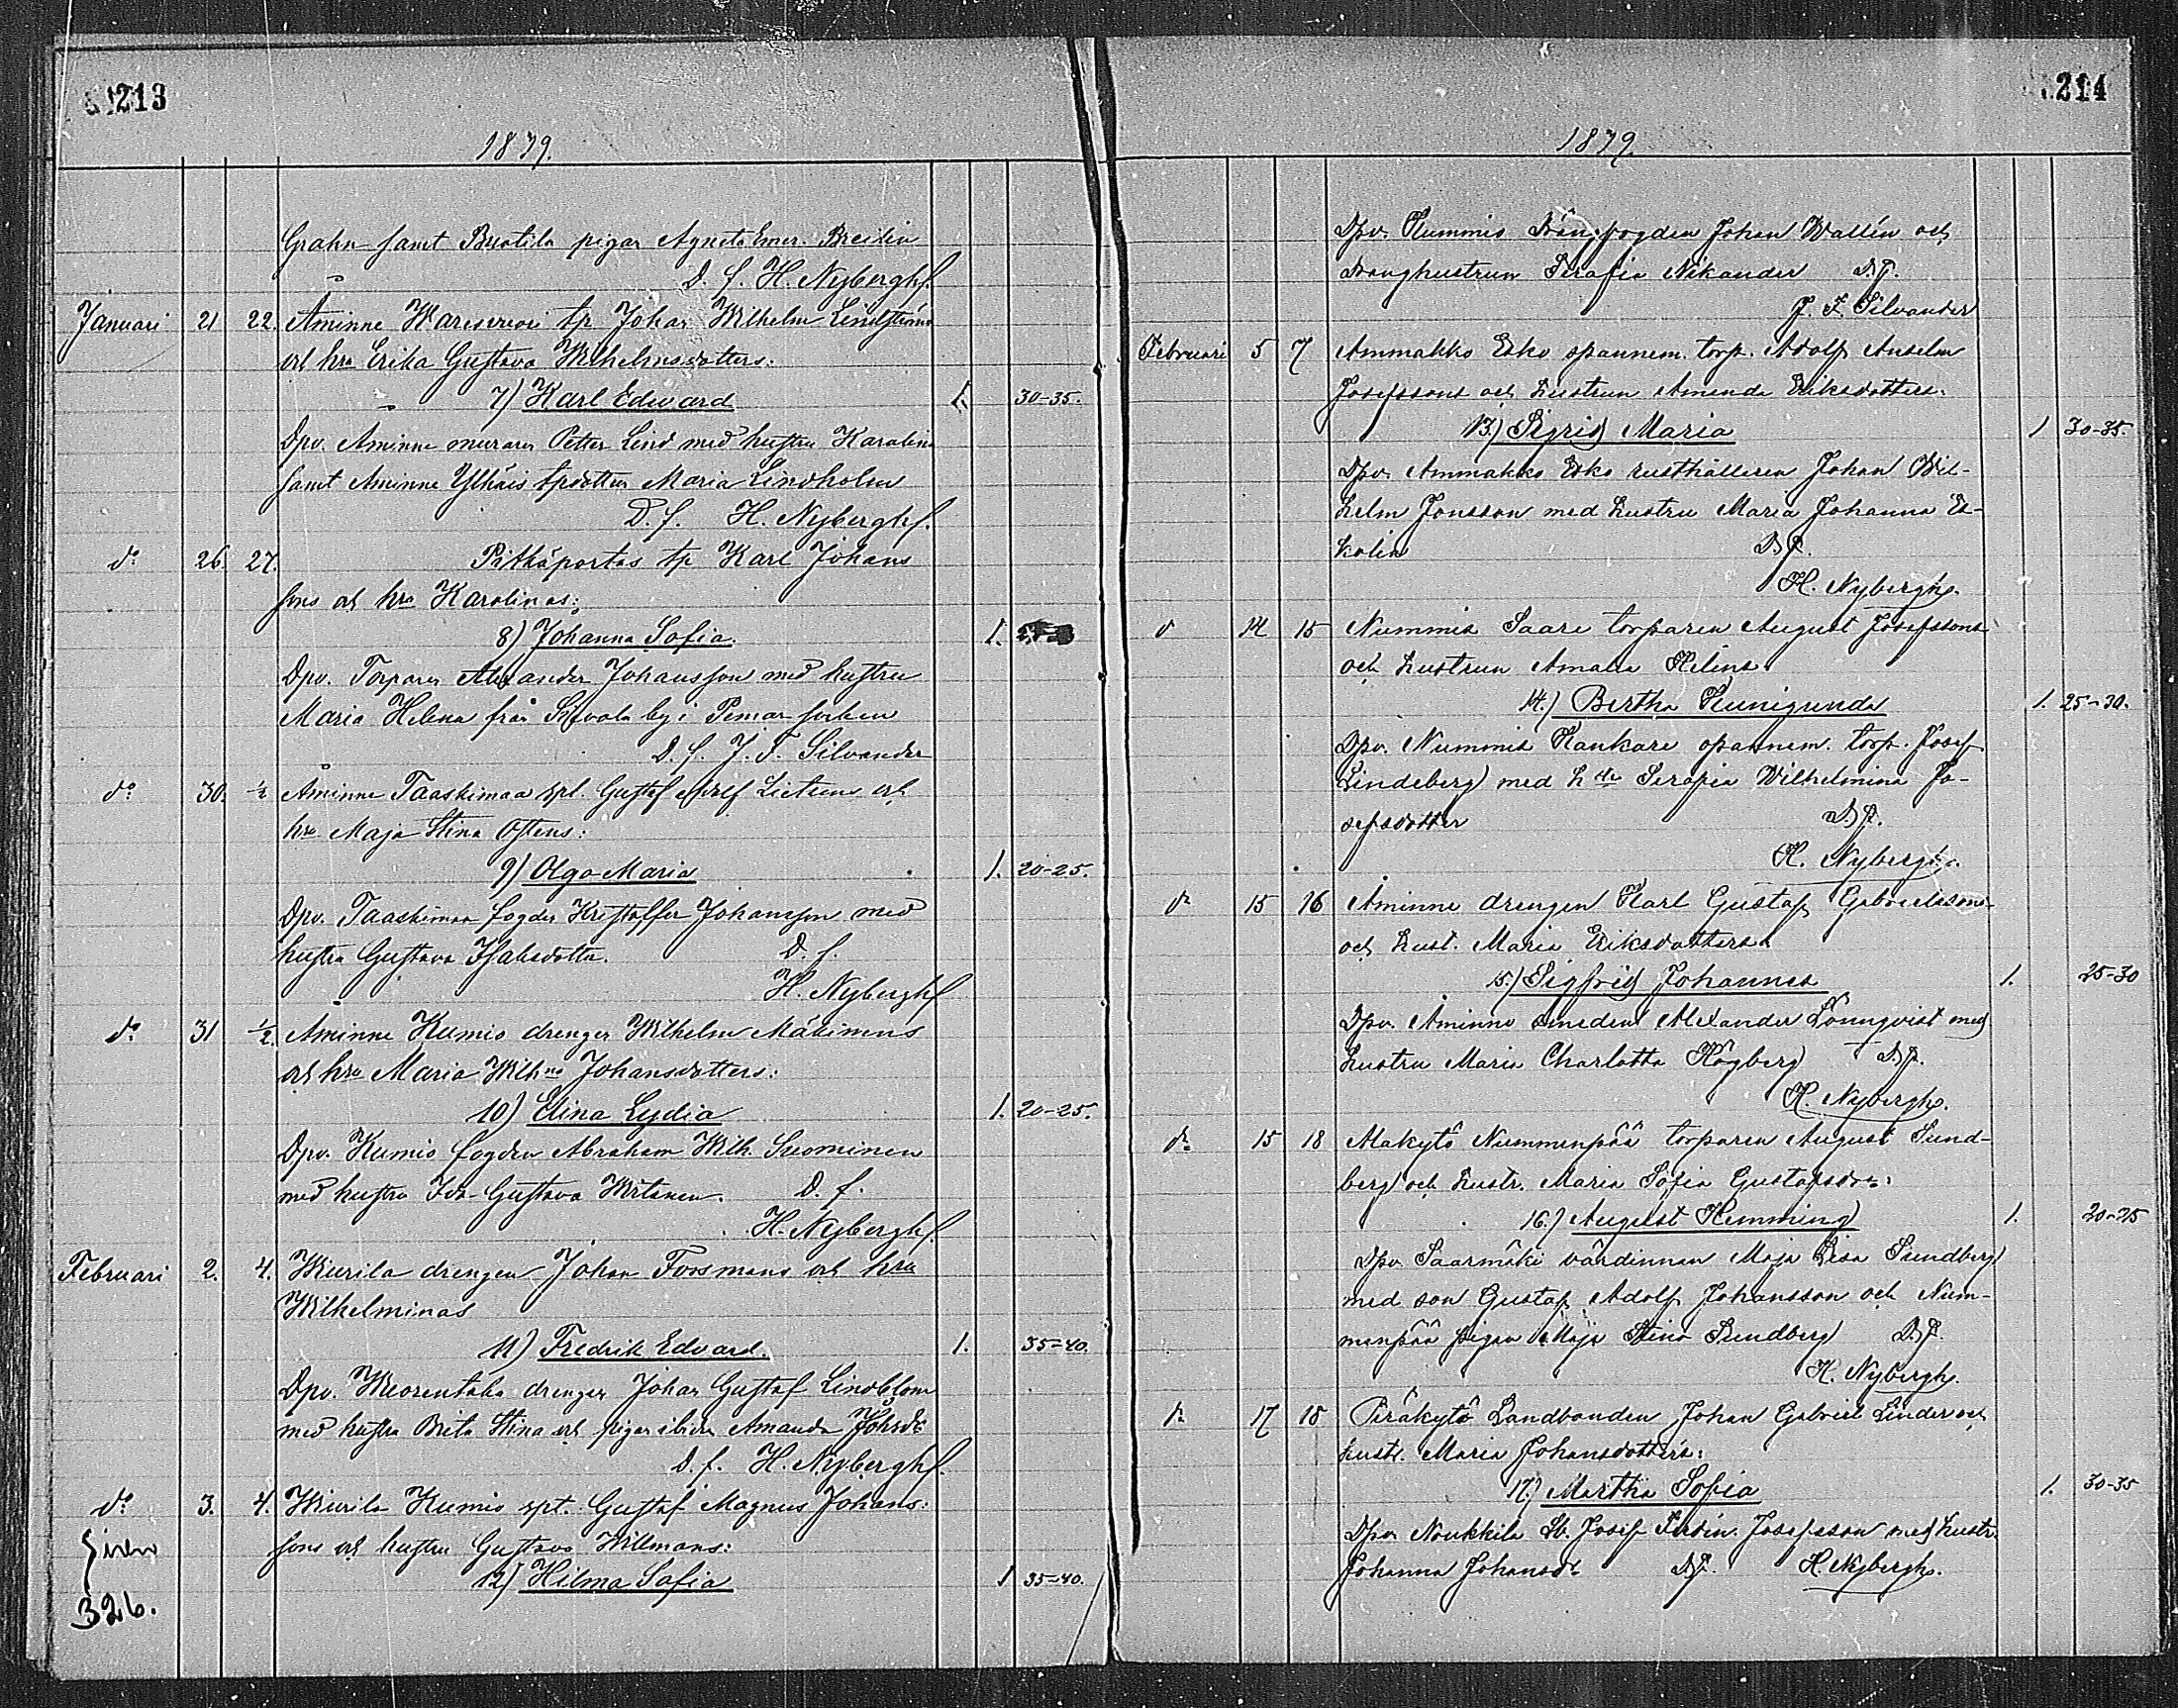 213
1879.
Grahn samt Buotila pigan Agneta Emer. Breilin
D. f. H. Nybergh.
Januari 21 22. Åminne tp Johan Wilhelm Lindströms
och hru Erika Gustava Wilhelmsdotters:
7) Karl Edward 1. 30-35.
Dpv. Åminne muraren Petter Lind med hustru Karolina
samt Åminne Ylhäis tpdottern Maria Lindholm
D. f. H. Nybergh.
do 26. 27. Pitkäportas tp Karl Johans
sons och hru Karolinas:
8) Johanna Sofia. 1.
Dpv. Torparen Alexander Johansson med hustru
Maria Helena från by i Pemar socken
D. f. J. F. Silvander
do 30. ½ Åminne Taaskimaa spt. Gustaf Adolf och
hru Maja Stina Östens:
9) Olga Maria 1. 20-25.
Dpv. Taaskimaa fogden Kristoffer Johansson med
hustru Gustava Isaksdotter. D. f.
H. Nybergh
do 31 ½. Åminne Kumio drengen Wilhelm Mäkinens
och hru Maria Wilhna Johansdotters:
10) Elina Lydia 1. 20-25.
Dpv. Kumio fogden Abraham Wilh. Suominen
med hustru Ida Gustava Witanen. D. f.
H. Nybergh.
Februari 2. 4. Wiurila drengen Johan Forsmans och hru
Wilhelminas
11) Fredrik Edvard. 1. 35-40.
Dpv. Wuorentaka drengen Johan Gustaf Lindblom
med hustru Brita Stina och pigan ibidem Amanda Johsdr
D. f. H. Nybergh.
do 3. 4. Wiurila Kumio spt. Gustaf Magnus Johans:
sons och hustru Gustava Willmans:
12) Hilma Sofia 1 35-40.
326.
214
1879.
Dpv. Kummis fogden Johan Wallén och
dränghustrun Serafia Nikander D. f.
J. F. Silvander
Februari 5 7 Ammakko Esko spannem. torp. Adolf Anselm
Josefssons och hustrun Amanda Eriksdotters:
13.) Sigrid Maria 1 30-35.
Dpv. Ammakko Esko rusthållaren Johan Wil-
helm Jonsson med hustru Maria Johanna Es-
kolin D. f.
H. Nybergh.
do 14 15 Nummis Saari torparen August Josefssons
och hustrun Amalia Helins
14.) Bertha Kunigunda 1. 25-30.
Dpv. Nummis Kankare spannem. torp. Josef
Lindeberg med hru Serafia Wilhelmina Jo-
sefsdotter D. f.
H. Nybergh.
do 15 16 Åminne drengen Karl Gustaf Gabrielssons
och hust. Maria Eriksdotters
15.) Sigfrid Johannes 1. 25-30
Dpv. Åminne smeden Alexander Lönnqvist med
hustru Maria Charlotta Högberg D. f.
H. Nybergh.
do 15 18 Alakytö Nummenpää torparen August Sund-
berg och hustr. Maria Sofia Gustafsdrs:
16.) August Hemming 1. 20-25
Dpv. Saarmäki värdinnan Maja Lisa Sundberg
med son Gustaf Adolf Johansson och Num-
menpää pigan Maja Stina Sundberg D. f.
H. Nybergh.
do 17 18 Peräkytö Landbonden Johan Gabriel Linder och
hustr. Maria Johansdotters:
17.) Martha Sofia 1. 30-35
Dpv. Noukkila Lb. Josef Ferdin. Josefsson med hustr.
Johanna Johansdr D. f. H. Nybergh.